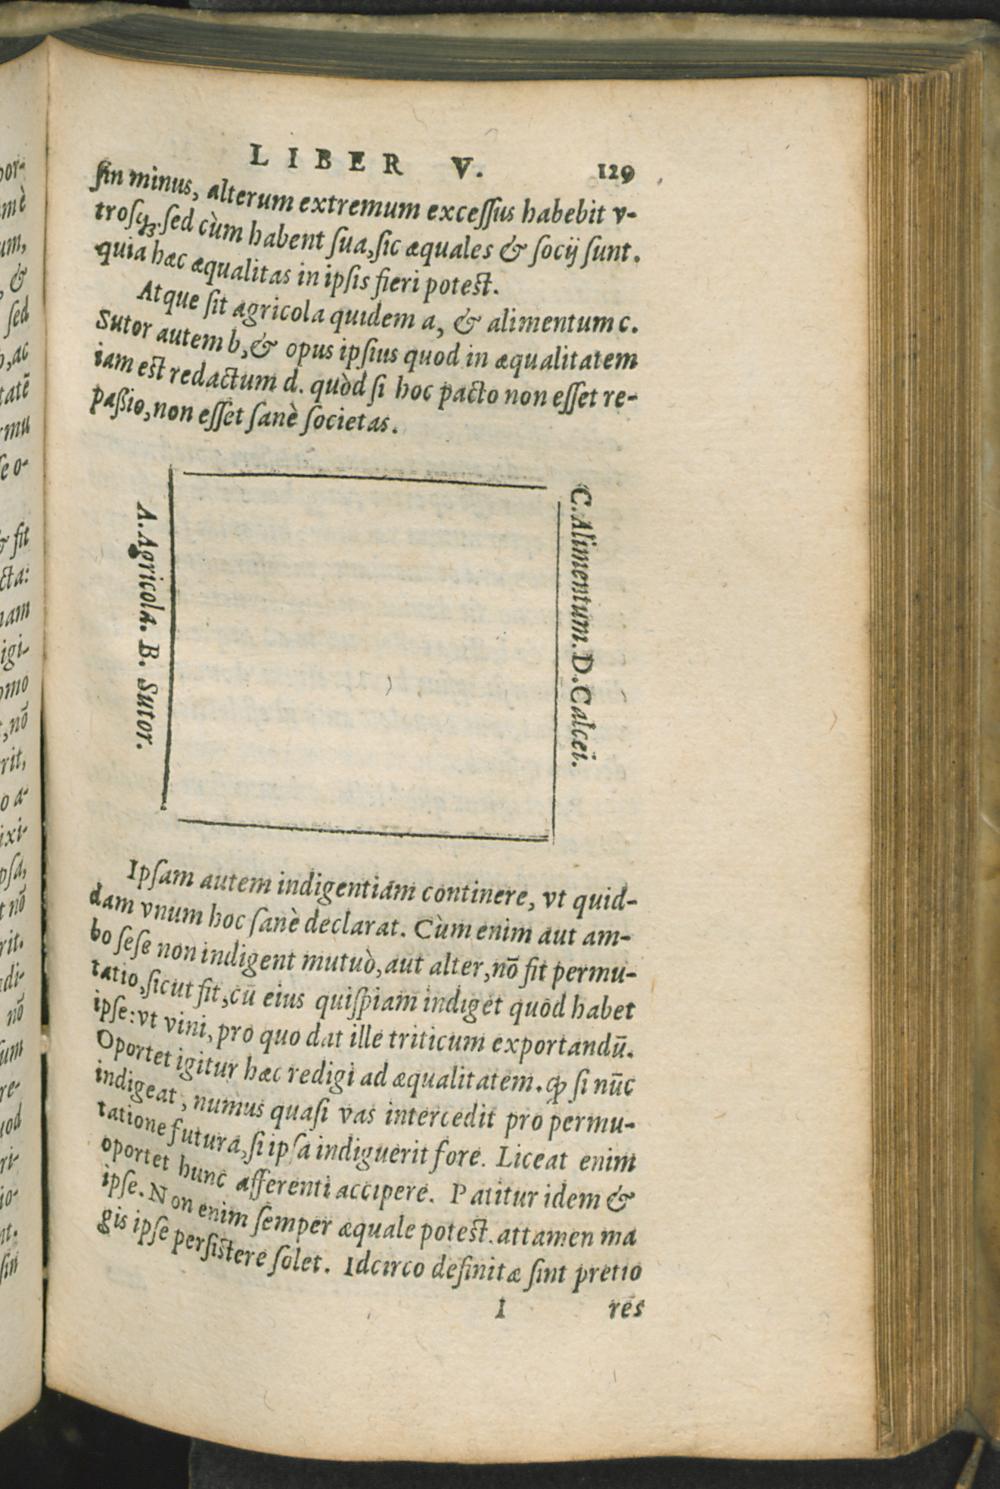 LIBER V. 129
ſin minus, alterum extremum exceſſus habebit v-
troſq́; ſed cùm habent ſua, ſic æquales & ſocij ſunt.
quia hæc æqualitas in ipſis fieri poteſt.
Atque ſit agricola quidem a, & alimentum c.
Sutor autem b, & opus ipſius quod in æqualitatem
iam eſt redactum d. quòd ſi hoc pacto non eſſet re-
paßio, non eſſet ſanè ſocietas.
A. Agricola. B. Sutor.
C. Alimentum. D. Calcei.
Ipſam autem indigentiam continere, vt quid-
dam vnum hoc ſanè declarat. Cùm enim aut am-
bo ſeſe non indigent mutuò, aut alter, nō fit permu-
tatio, ſicut fit, cū eius quiſpiam indiget quod habet
ipſe: vt vini, pro quo dat ille triticum exportandū.
Oportet igitur hæc redigi ad æqualitatem. ꝙ ſi nūc
indigeat, numus quaſi vas intercedit pro permu-
tatione futura, ſi ipſa indiguerit fore. Liceat enim
oportet hunc afferenti accipere. Patitur idem &
ipſe. Non enim ſemper æquale poteſt. attamen ma
gis ipſe perſiſtere ſolet. Idcirco definitæ ſint pretio
I res